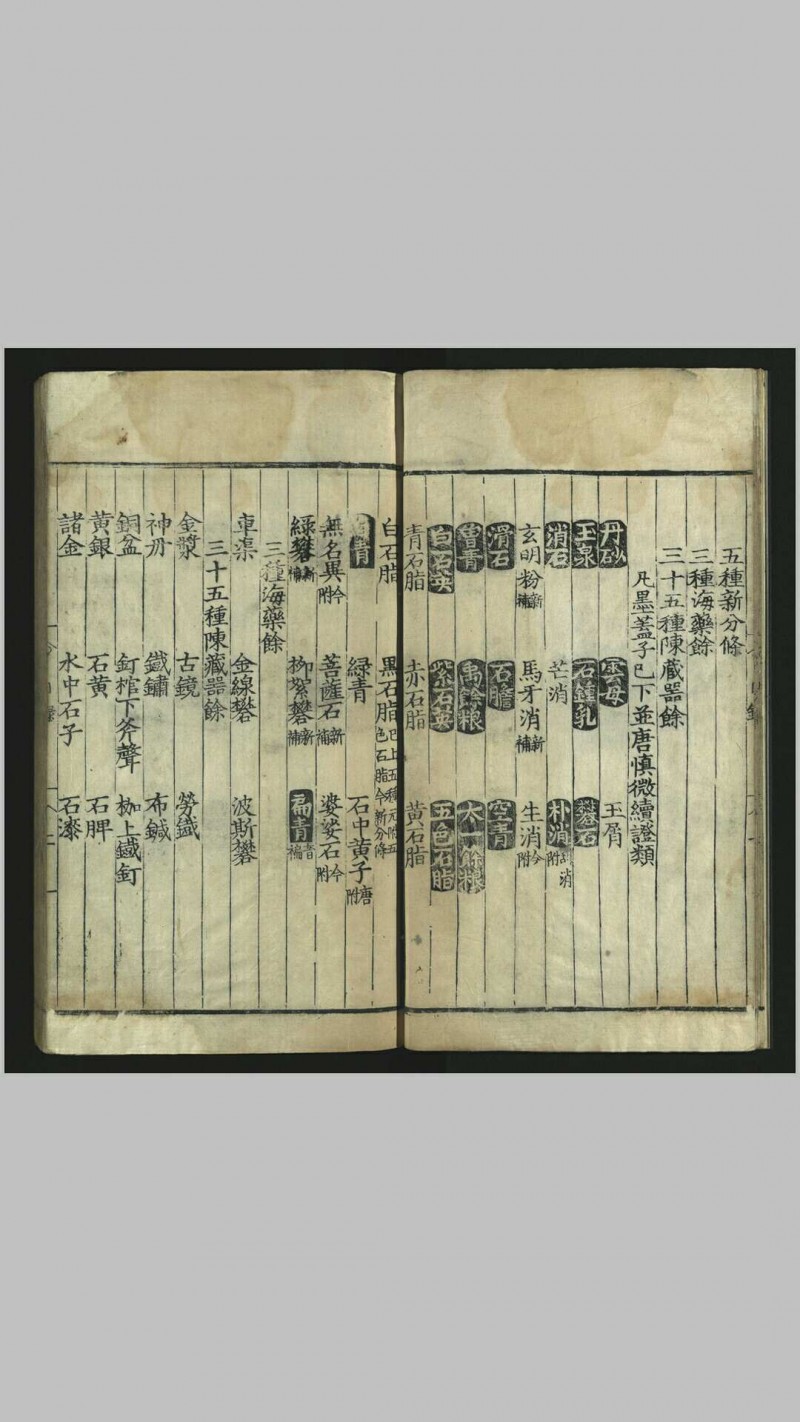 五種新分條
三種海藥餘
三十五種陳藏器餘
凡墨蓋子已下並唐慎微續證類
丹砂 雲母 玉屑
玉泉 石鍾乳 礬石
消石 芒消 朴消 消附
玄明粉新補 馬牙消新補 生消今附
滑石 石膽 空青
曾青 禹餘粮 太一餘粮
白石英 紫石英 五色石脂
青石脂 赤石脂 黃石脂
白石脂 黑石脂已上五種元附五色石脂今新分條
青 綠青 石中黃子唐附
無名異今附 菩薩石新補 婆娑石今附
綠礬新補 柳絮礬新補 扁青
三種海藥餘
車渠 金線礬 波斯礬
三十五種陳藏器餘
金漿 古鏡 勞鐵
神丹 鐵鏽 布鍼
銅盆 釘棺下斧聲 枷上鐵釘
黃銀 石黃 石脾
諸金 水中石子 石漆